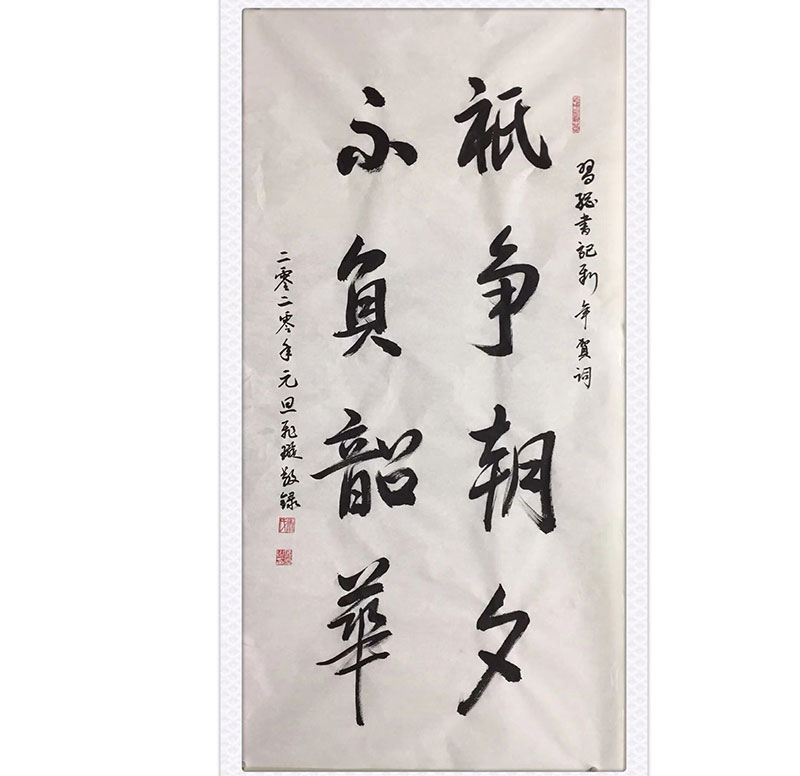 習總書記新年賀詞
祇争朝夕
不負韶華
二零二零年元旦
敬錄